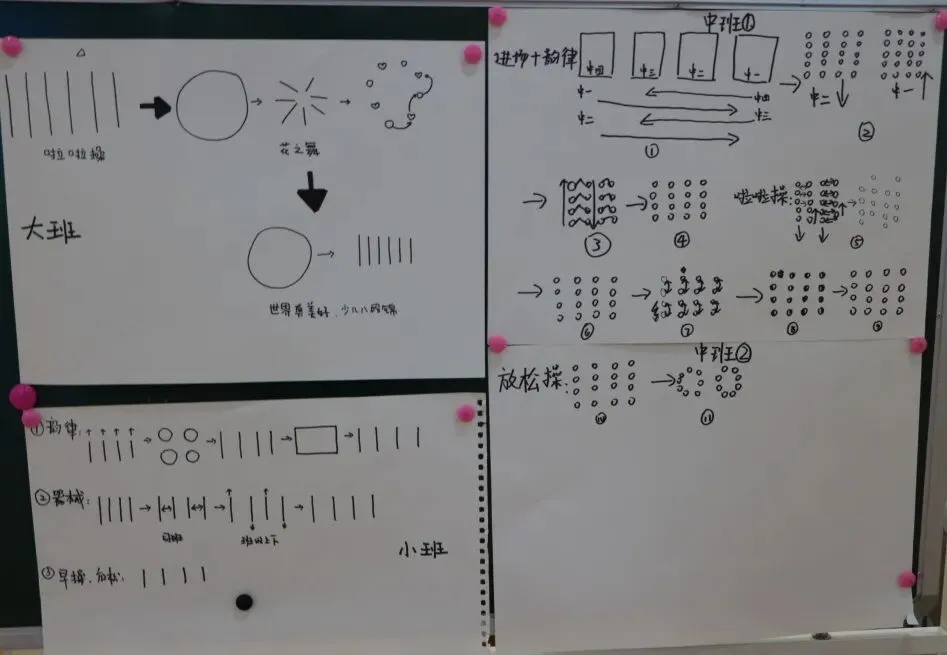 啦啦操
花之舞
大班
世界真美好、少儿八段锦
①韵律:
②器械:
班级上下
小班
③早操、放松:
中班①
进场+韵律
中四 中三 中二 中一
中一 中四
中二 中三
①
中二 中一
②
③
④
啦啦操:
⑤
⑥
⑦
⑧
⑨
中班②
放松操:
⑩
⑪